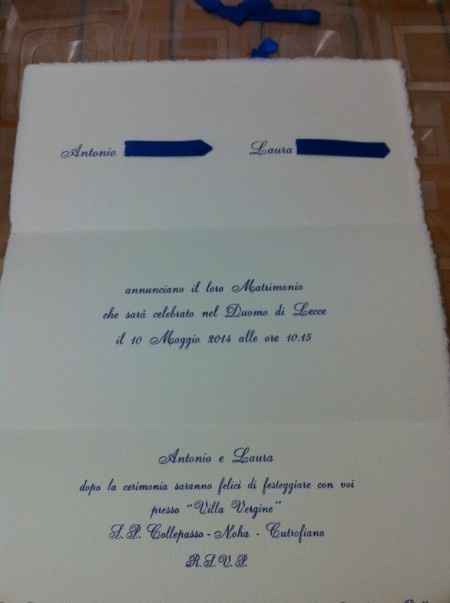 Antonio Laura
annunciano il loro Matrimonio
che sarà celebrato nel Duomo di Lecce
il 10 Maggio 2014 alle ore 10.15
Antonio e Laura
dopo la cerimonia saranno felici di festeggiare con voi
presso "Villa Vergine"
S.P. Collepasso - Noha - Cutrofiano
R.S.V.P.